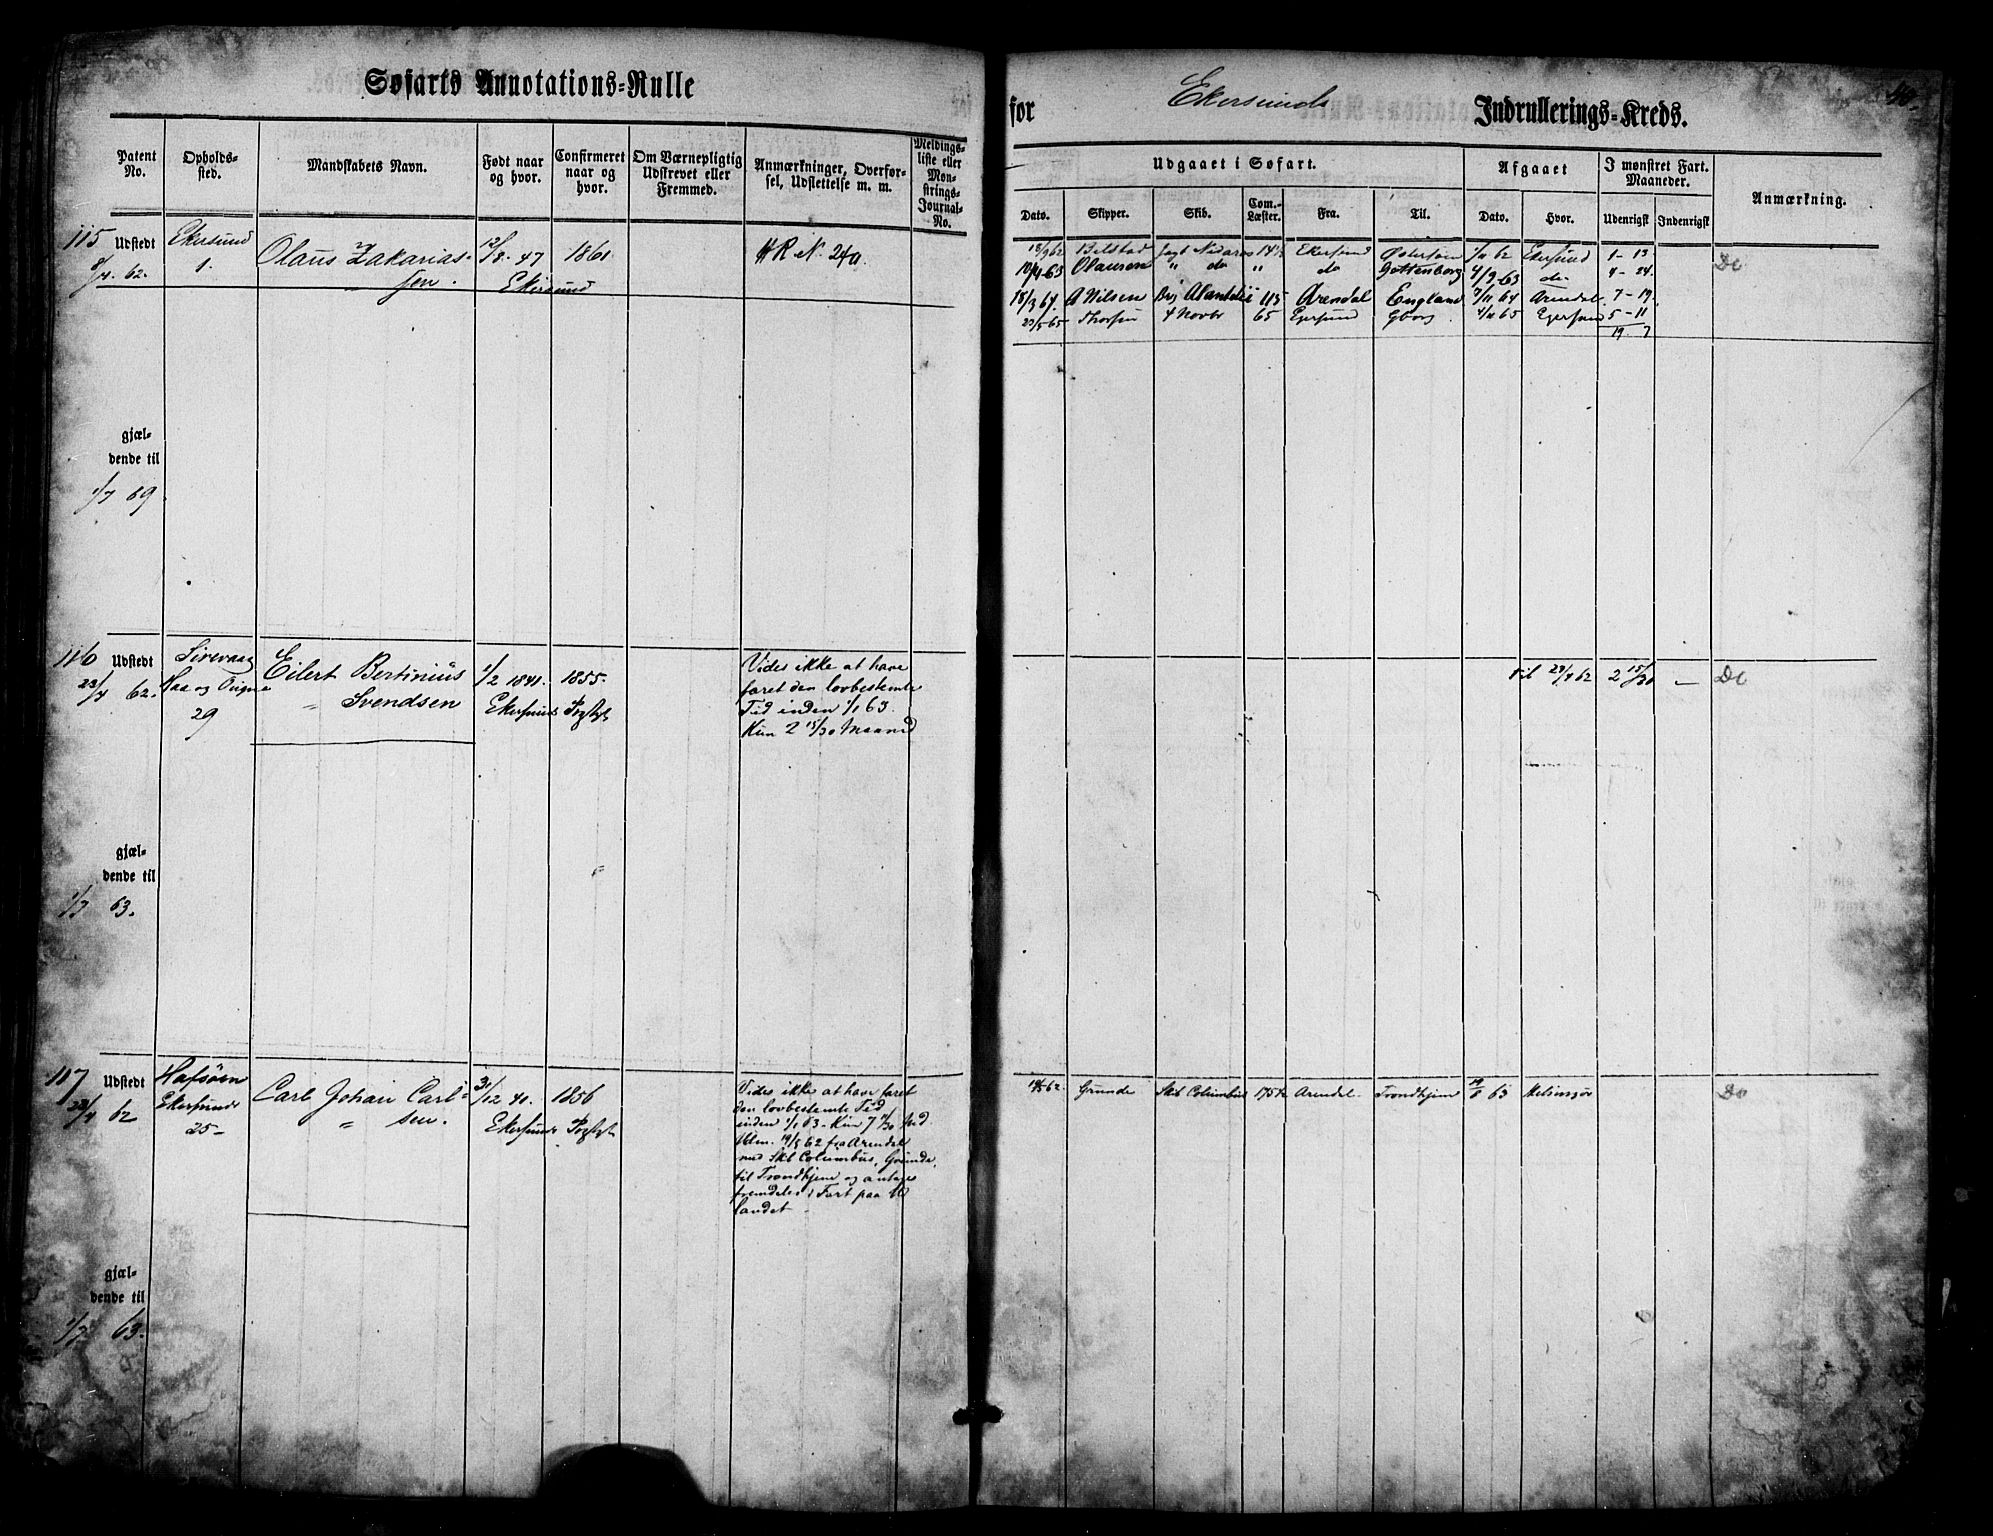 Søfarts Annotations=Rulle
Patent No.
Opholds-sted.
Mandskabets Navn.
Født naar og hvor.
Confirmeret naar og hvor.
Om Værnepligtig Udskrevet eller Fremmed.
Anmærkninger, Overførsel, Udslettelse m. m.
Meldingsliste eller Mønstrings-Journal-No.
115 Udstedt
8/4. 62.
Ekersund
1.
Olaus Zakarias-
sen.
12/8. 47
Ekersund
1861
H R N. 240
gjæl-
dende til
1/7 69
116 Udstedt
23/4 62.
Sirevaag
29
Eilert Bertinius
" Svendsen
1/2 1841.
Ekersund
1855.
Vides ikke at have
faret den lovbestemte
Tid inden 1/1 63.
Kun 2 15/30 Maaned
gjæl-
dende til
1/7 63.
117 Udstedt
23/4 62
Hafsøen
Ekersund
25-
Carl Johan Carl-
" sen.
31/12 40.
Ekersund
1856
Vides ikke at have faret
den lovbestemte Tid
inden 1/1 63 - Kun 7
fra Arendal
med Skb Columbus, Grunde,
til Trondhjem og antages
fremdeles i Fart paa U
landet -
gjæl-
dende til
1/7 63.
for Ekersunds Indrullerings-Kreds.
40.
Udgaaet i Søfart.
Afgaaet
I mønstret Fart. Maaneder.
Anmærkning.
Dato.
Skipper.
Skib.
Com.-Læster.
Fra.
Til.
Dato.
Hvor.
Udenrigsk
Indenrigsk
18/9 62 Jagt Nidaros 14½ Ekersund Østersøen 1/11 62 Ekersund 1 - 13
10/4 63 Olausen " do " do Gøttenborg 4/9 63 do 4 - 24.
18/3 64. A Nilsen 115 Arendal England 7/11 64 Arendal 7 - 19.
23/5 65 4 Novbr 65 Egersund Gborg. 4/11 65 Egersund 5 - 11
19. 7
Do
til 29/8 62 2 15/30 -
Do
14/5 62. Grunde Skb Columbus 175½ Arendal. Trondhjem 19/8 63 Helsingør
Do